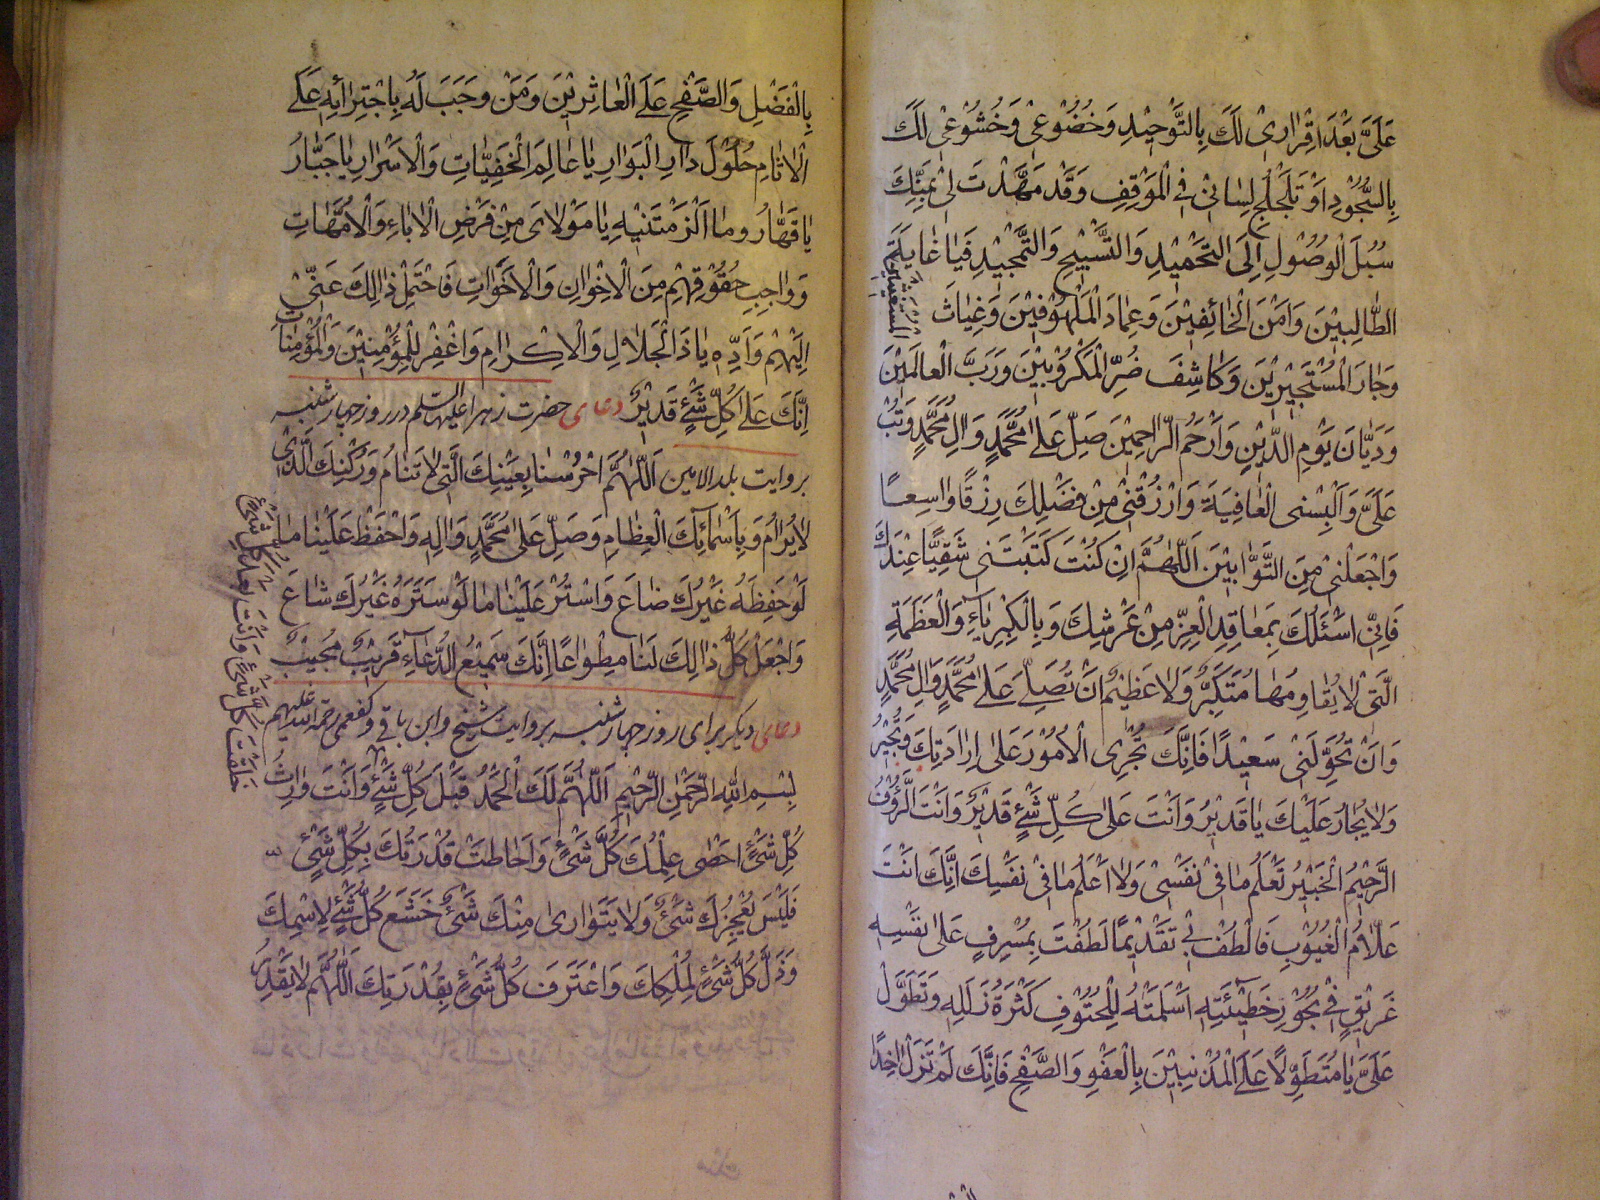 عَلَىَّ بَعْدَ اِقْرٰارىْ لَكَ بِالتَّوْحيْدِ وَخُضُوْعىْ وَخُشُوْعىْ لَكَ
بِالسُّجُوْدِ اَوْ تَلَجْلَجَ لِسٰانىْ فِى الْمَوْقِفِ وَقَدْ مَهَّدْتَ لىْ بِمَنِّكَ
سُبُلَ الْوُصُوْلِ اِلَى التَّحْميْدِ وَالتَّسْبيْحِ وَالتَّمْجيْدِ فَيٰا غٰايَةَ
الطّٰالِبيْنَ وَاَمْنَ الْخٰائِفيْنَ وَعِمٰادَ الْمَلْهُوْفيْنَ وَغِيٰاثَ
الْمُسْتَغيْثيْنَ
وَجٰارَ الْمُسْتَجيْريْنَ وَكٰاشِفَ ضُرِّ الْمَكْرُوْبيْنَ وَرَبَّ الْعٰالَميْنَ
وَدَيّٰانَ يَوْمِ الدّيْنِ وَاَرْحَمَ الرّٰاحِميْنَ صَلِّ عَلىٰ مُحَمَّدٍ وَاٰلِ مُحَمَّدٍ وَتُبْ
عَلَىَّ وَاَلْبِسْنى الْعٰافِيَةَ وَارْزُقْنىْ مِنْ فَضْلِكَ رِزْقًا وٰاسِعـًا
وَاجْعَلْنىْ مِنَ التَّوّٰابيْنَ اَللّٰهُمَّ اِنْ كُنْتَ كَتَبْتَنى شَقِيًّا عِنْدَكَ
فَاِنّىْ اَسْئَلُكَ بِمَعٰاقِدِ الْعِزِّ مِنْ عَرْشِكَ وَبِالْكِبْرِيٰآءِ وَالْعَظَمَةِ
الَّتىْ لٰا يُقٰاوِمُهٰا مُتَكَبِّرٌ وَلٰا عَظيْمٌ اَنْ تُصَلِّىَ عَلىٰ مُحَمَّدٍ وَاٰلِ مُحَمَّدٍ
وَاَنْ تُحَوِّلَنىْ سَعيْدًا فَاِنَّكَ تُجْرِى الْاُمُوْرَ عَلىٰ اِرٰادَتِكَ وَتُجيْرُ
وَلٰا يُجٰارُ عَلَيْكَ يٰا قَديْرُ وَاَنْتَ عَلىٰ كُلِّ شَىْءٍ قَديْرٌ وَاَنْتَ الرَّؤُفُ
الرَّحيْمُ الْخَبيْرُ تَعْلَمُ مٰا فىْ نَفْسىْ وَلٰا اَعْلَمُ مٰا فىْ نَفْسِكَ اِنَّكَ اَنْتَ
عَلّٰامُ الْغُيُوْبِ فَالْطُفْ بىْ تَقْديْمًا لَطُفْتَ بِمُسْرِفٍ عَلىٰ نَفْسِهِ
غَريْقٍ فىْ بُحُوْرِ خَطيْئَتِهِ اَسْلَمَتْهُ لِلْحُتُوْفِ كَثْرَةُ زَلَلِهِ وَتَطَوَّلْ
عَلَىَّ يٰا مُتَطَوِّلًا عَلَى الْمُذْنِبيْنَ بِالْعَفْوِ وَالصَّفْحِ فَاِنَّكَ لَمْ تَزَلْ اٰخِذًا
بِالْفَضْلِ وَالصَّفْحِ عَلَى الْعٰاثِريْنَ وَمَنْ وَجَبَ لَهُ بِاجْتِرٰائِهِ عَلَى
الْاٰثٰامِ حُلُوْلَ دٰارِ الْبَوٰارِ يٰا عٰالِمَ الْخَفِيّٰاتِ وَالْاَسْرٰارِ يٰا جَبّٰارُ
يٰا قَهّٰارُ وَمٰا اَلْزَمْتَنيْهِ يٰا مَوْلٰاىَ مِنْ فَرْضِ الْاٰبٰاءِ وَالْاُمَّهٰاتِ
وَوٰاجِبِ حُقُوْقِهِمْ مِنَ الْاِخْوٰانِ وَالْاَخَوٰاتِ فَاحْتَمِلْ ذٰلِكَ عَنّىْ
اِلَيْهِمْ وَاَدِّهِ يٰا ذَا الْجَلٰالِ وَالْاِكْرٰامِ وَاغْفِرْ لِلْمُؤْمِنيْنَ وَالْمُؤْمِنٰاتِ
اِنَّكَ عَلىٰ كُلِّ شَىْءٍ قَديْرٌ دعاى حضرت زهرا عليها السلم در روز چهارشنبه
بروايت بلد الامين اَللّٰهُمَّ احْرُسْنٰا بِعَيْنِكَ الَّتىْ لٰا تَنٰامُ وَرُكْنِكَ الَّذىْ
لٰا يُرٰامُ وَبِاَسْمٰائِكَ الْعِظٰامِ وَصَلِّ عَلىٰ مُحَمَّدٍ وَاٰلِهِ وَاحْفَظْ عَلَيْنٰا مٰا
لَوْ حَفِظَهُ غَيْرُكَ ضٰاعَ وَاسْتُرْ عَلَيْنٰا مٰا لَوْ سَتَرَهُ غَيْرُكَ شٰاعَ
وَاجْعَلْ كُلَّ ذٰلِكَ لَنٰا مِطْوٰاعًا اِنَّكَ سَميْعُ الدُّعٰآءِ قَريْبٌ مُجيْبٌ
دعاى ديكر براى روز چهارشنبه بروايت شيخ و ابن باقى و كفعمى رحمة الله عليهم
بِسْمِ اللهِ الرَّحْمٰنِ الرَّحيْمِ اَللّٰهُمَّ لَكَ الْحَمْدُ قَبْلَ كُلِّ شَىْءٍ وَاَنْتَ وٰارِثُ
خَلَقْتَ كُلَّ شَىْءٍ وَاَنْتَ بَعْدَ كُلِّ شَىْءٍ
كُلِّ شَىْءٍ اَحْصٰى عِلْمُكَ كُلَّ شَىْءٍ وَاَحٰاطَتْ قُدْرَتُكَ بِكُلِّ شَىْءٍ
فَلَيْسَ يُعْجِزُكَ شَىْءٌ وَلٰا يَتَوٰارىٰ مِنْكَ شَىْءٌ خَشَعَ كُلُّ شَىْءٍ لِاِسْمِكَ
وَذَلَّ كُلُّ شَىْءٍ لِمُلْكِكَ وَاعْتَرَفَ كُلُّ شَىْءٍ بِقُدْرَتِكَ اَللّٰهُمَّ لٰا يَقْدِرُ